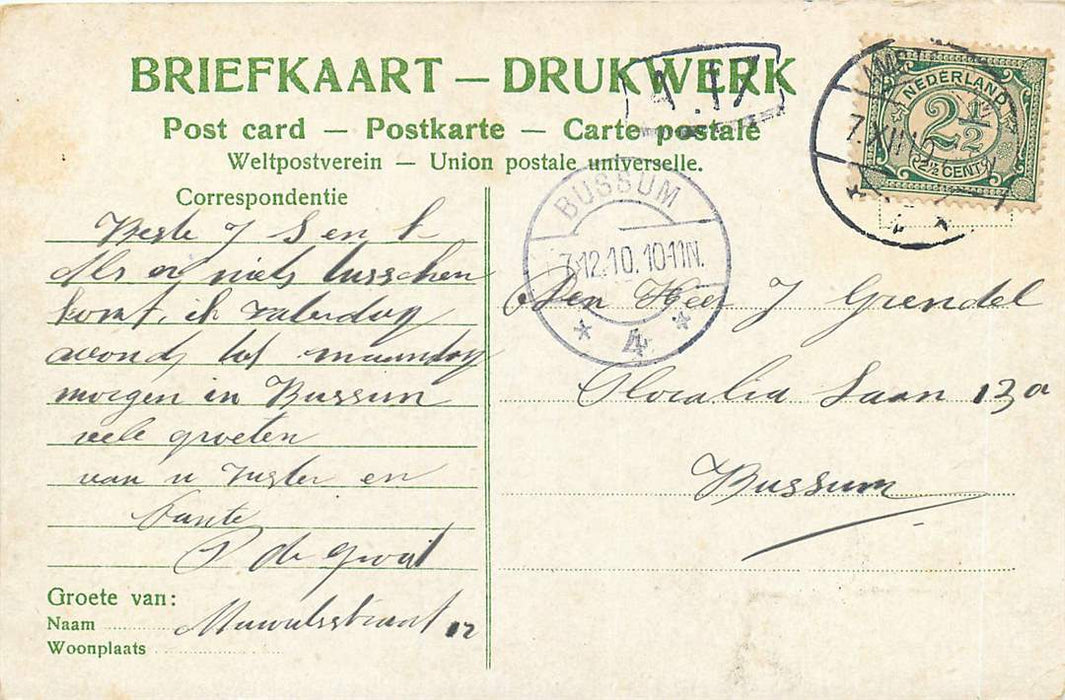 BRIEFKAART — DRUKWERK
Post card — Postkarte — Carte postale
Weltpostverein — Union postale universelle.
Correspondentie
NEDERLAND
2½
2½ CENT
7.XII
BUSSUM
7.12.10.10-11N.
4
Beste J S en
Als er niets tusschen
komt, ik zaterdag
avond, tot maandag
morgen in Bussum
vele groeten
van u zuster en
tante
de Groot
Groete van:
Naam
12
Woonplaats
Den Heer J Grendel
Laan 13a
Bussum